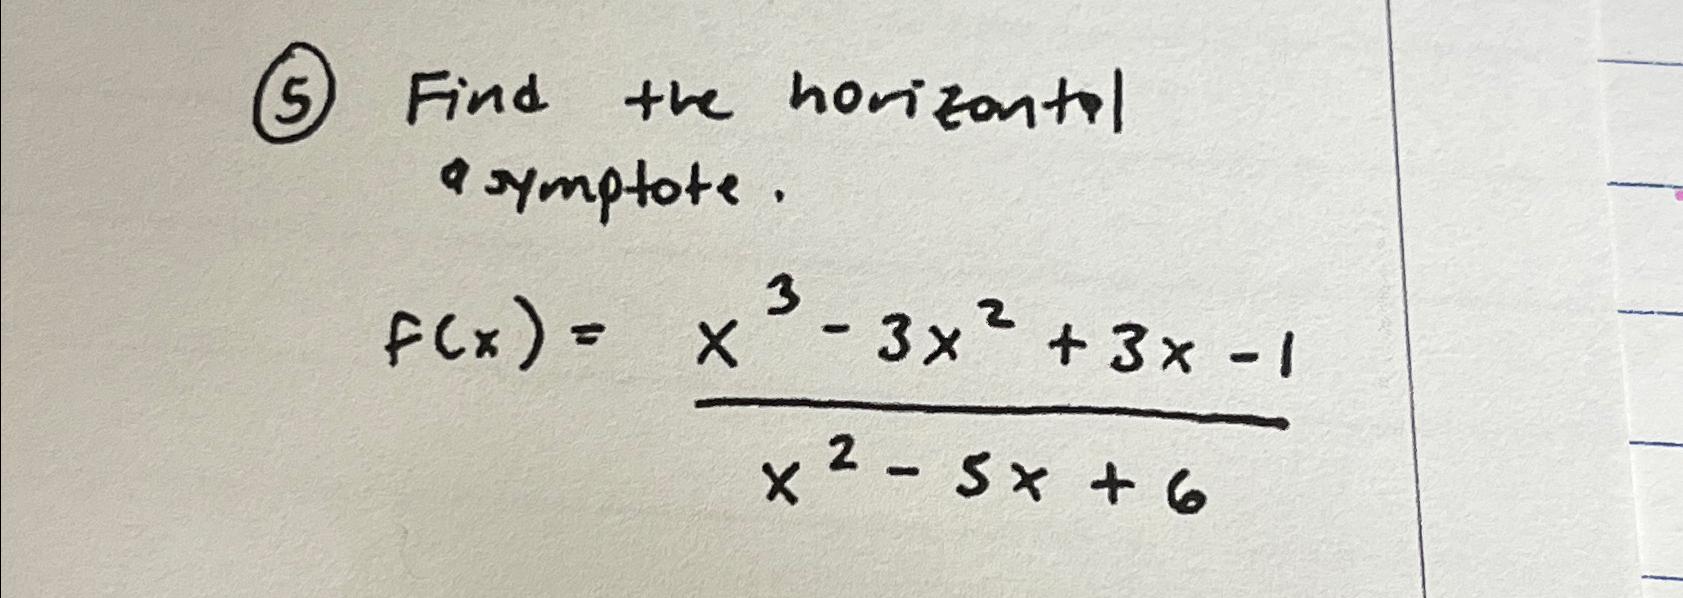 ⑤ Find the horizontal
asymptote.
f(x) = x³ - 3x² + 3x - 1
x² - 5x + 6